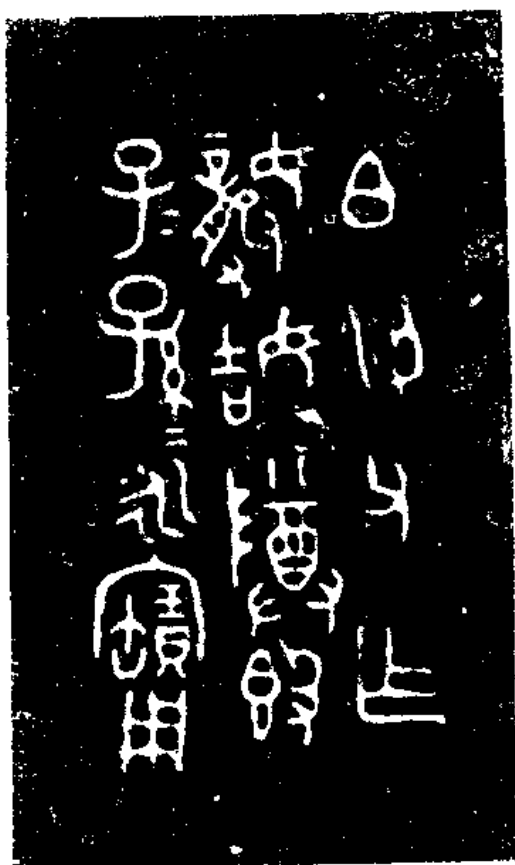 白父乍
姞𨺅𣪘
子=孫=永寶用